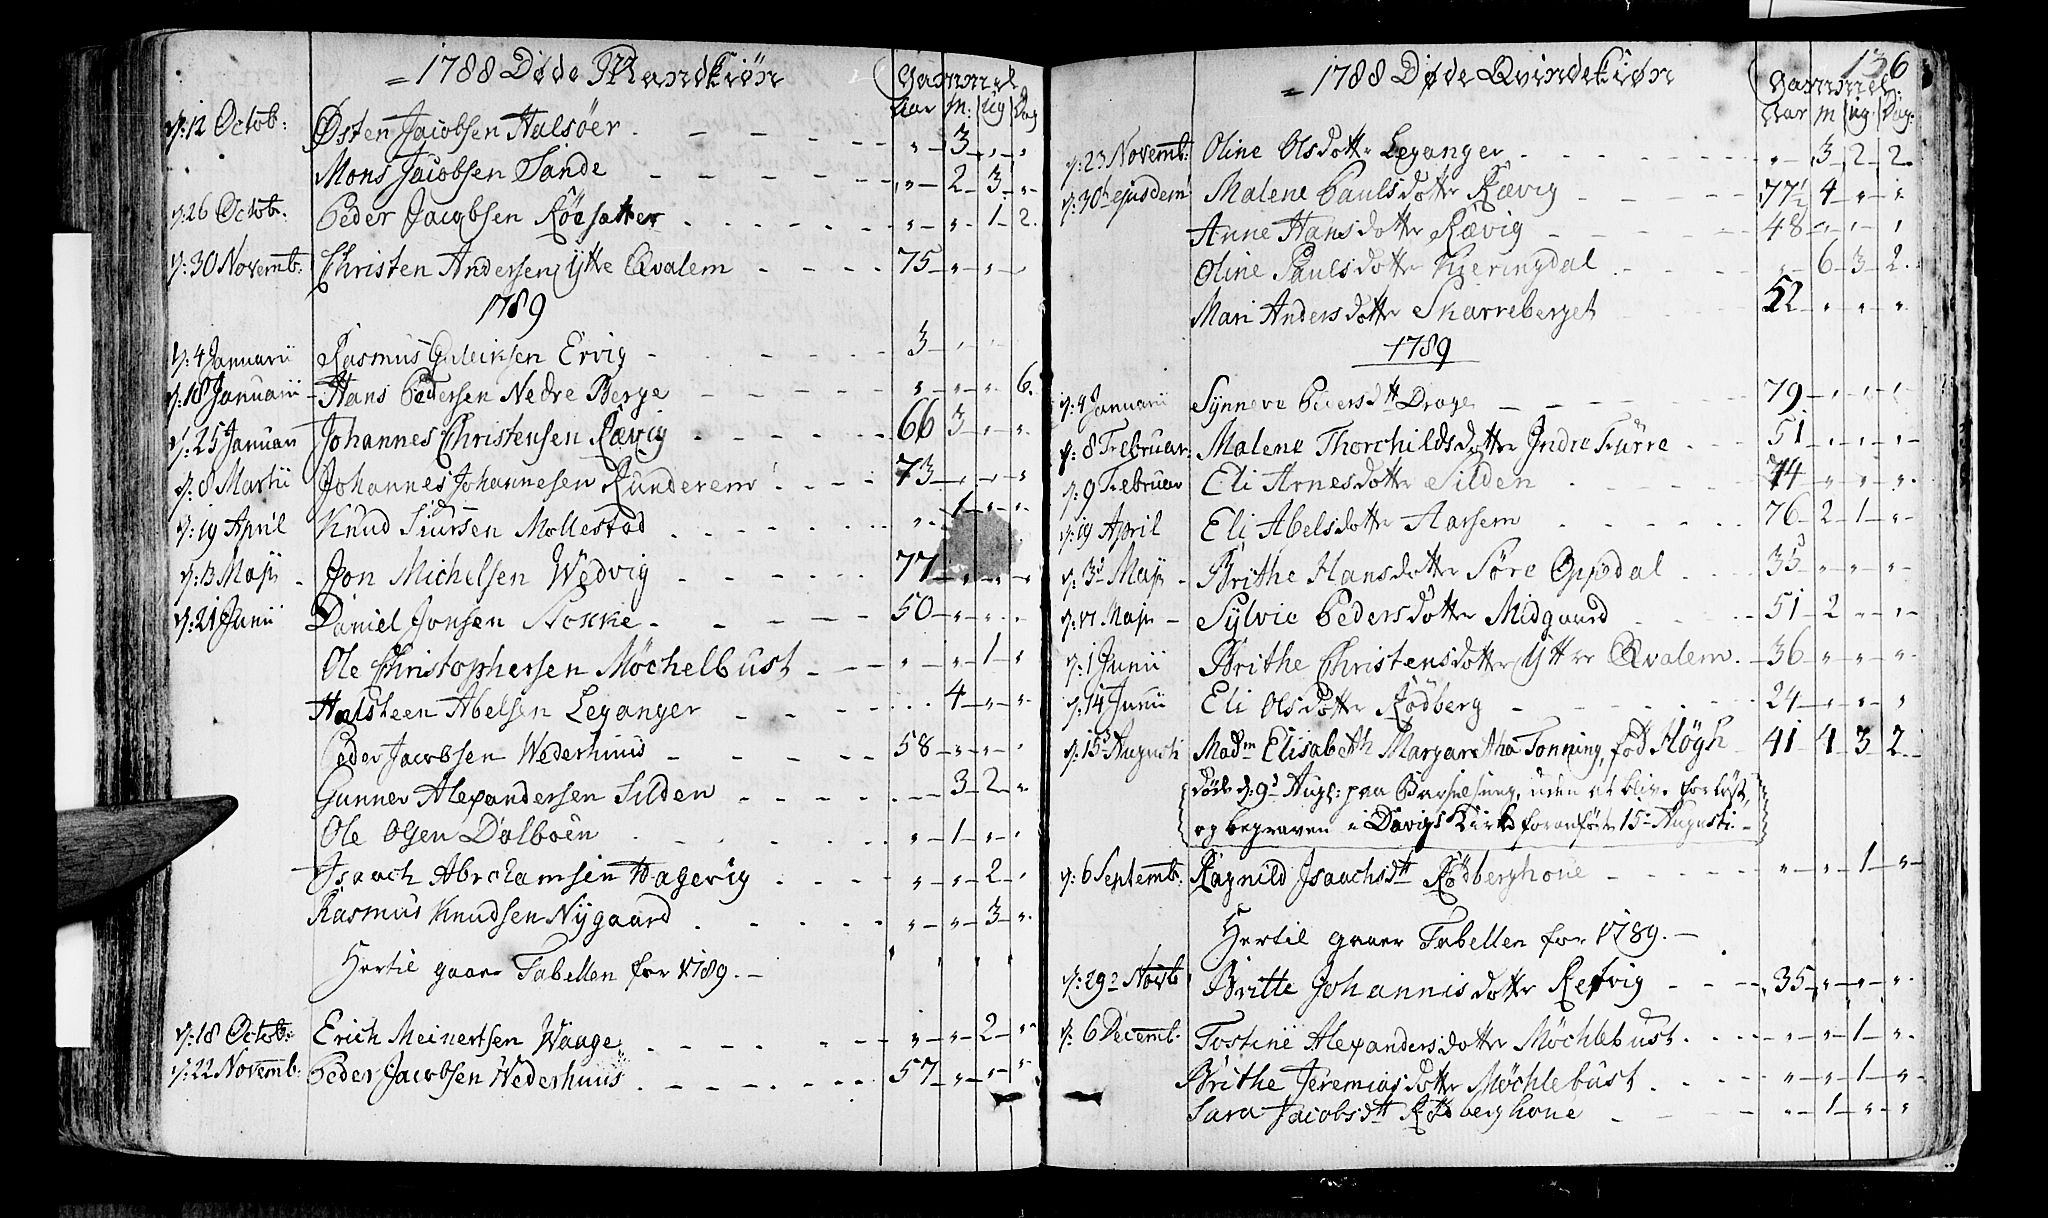 1788 Døde Mandkiøn
Gammel
Aar M: Ug Dag
d: 12 Octob: Østen Jacobsen Halsöer - 3 „ „
Mons Jacobsen Sande „ 2 3 „
d: 26 Octob. Peder Jacobsen Röesætter „ „ 1 2.
d: 30 Novemb: Christen Andersen Ytte Qvalem 75 „ „ „
1789
d: 4 Januarii Rasmus Gulleiksen Ervig 3 „ „
d: 18 Januarii Hans Pedersen Nedre Berge „ „ „ 6.
d: 25 Januari Johannes Christensen Rævig 66 3 „ „
d: 8 Martii Johannes Johannesen Runderem 73 „ „ „
d: 19 April Knud Siursen Mollestad „ 1 „ „
d: 13 Maji Jon Michelsen Wedvig 77 „ „ „
d: 21 Junii Daniel Jonsen Nokke 50 „ „ „
Ole Christophersen Möchelbust „ „ 1 „
Halsteen Abelsen Leganger „ 4 „ „
Peder Jacobsen Wederhuus 58 „ „ „
Gunner Alexandersen Silden - 3 2 „
Ole Olsen Dalböen „ 1 „ „
Isaach Abrahamsen Hagevig „ „ 2 „
Rasmus Knudsen Nygaard „ „ 3 „
Hertil gaaer Tabellen for 1789.
d: 18 Octob: Erich Meinertsen Waage „ „ 2 „
d: 22 Novemb: Peder Jacobsen Wederhuus 57 „ „ „
136
1788 Døde Qvindekiøn
Gammel:
Aar M Ug Dag.
d: 23 Novemb: Oline Olsdotter Leganger „ 3 2 2.
d: 30 ejusdem Malene Paulsdotter Rævig 77½ 4 „ „
Anne Hansdotter Rævig 48 „ „ „
Oline Paulsdotter Kieringdal „ 6 3 2.
Mari Andersdotter Skarreberget 52 „ „ „
1789
d: 4 Januarii Synneve Pedersdtt Drage 79 „ „ „
d: 8 Februar: Malene Thorchildsdotter Indre Furre 51 „ „ „
d: 9 Februar Eli Arnesdotter Silden 44 „ „ „
d: 19 April Eli Abelsdotter Aarsem 76 2 1 „
d: 3d Maji Brithe Hansdotter Søre Oppedal 35 „ „ „
d: 17 Maji Sylvie Pedersdotter Midgaard 51 2 „ „
d: 1 Junii Brithe Christensdotter Ytter Qvalem. 36 „ „ „
d: 14 Junii Eli Olsdotter Rödberg 24 „ „ „
d: 15 Augusti Madm Elisabeth Margaretha Tonning, fød Högh 41 4 3 2
døde d. 9d Aug: paa Barselseng, uden at blive forløst,
og begraven i Davigs Kirke foranførte 15 Augusti
d: 6 Septemb: Ragnild Isaachsdtt Rødberghoue „ „ 1 „
Hertil gaaer Tabellen for 1789.
d: 29 Novb Britte Johannisdotter Refvig 35 „ „ „
d: 6 Decemb. Tostine Alexandersdotter Möchlebust. „ „ 1 „
Brithe Jeremiasdotter Möchlebust „ „ 1 „
Sara Jacobsdtt Rødberghoue „ 1 „ „